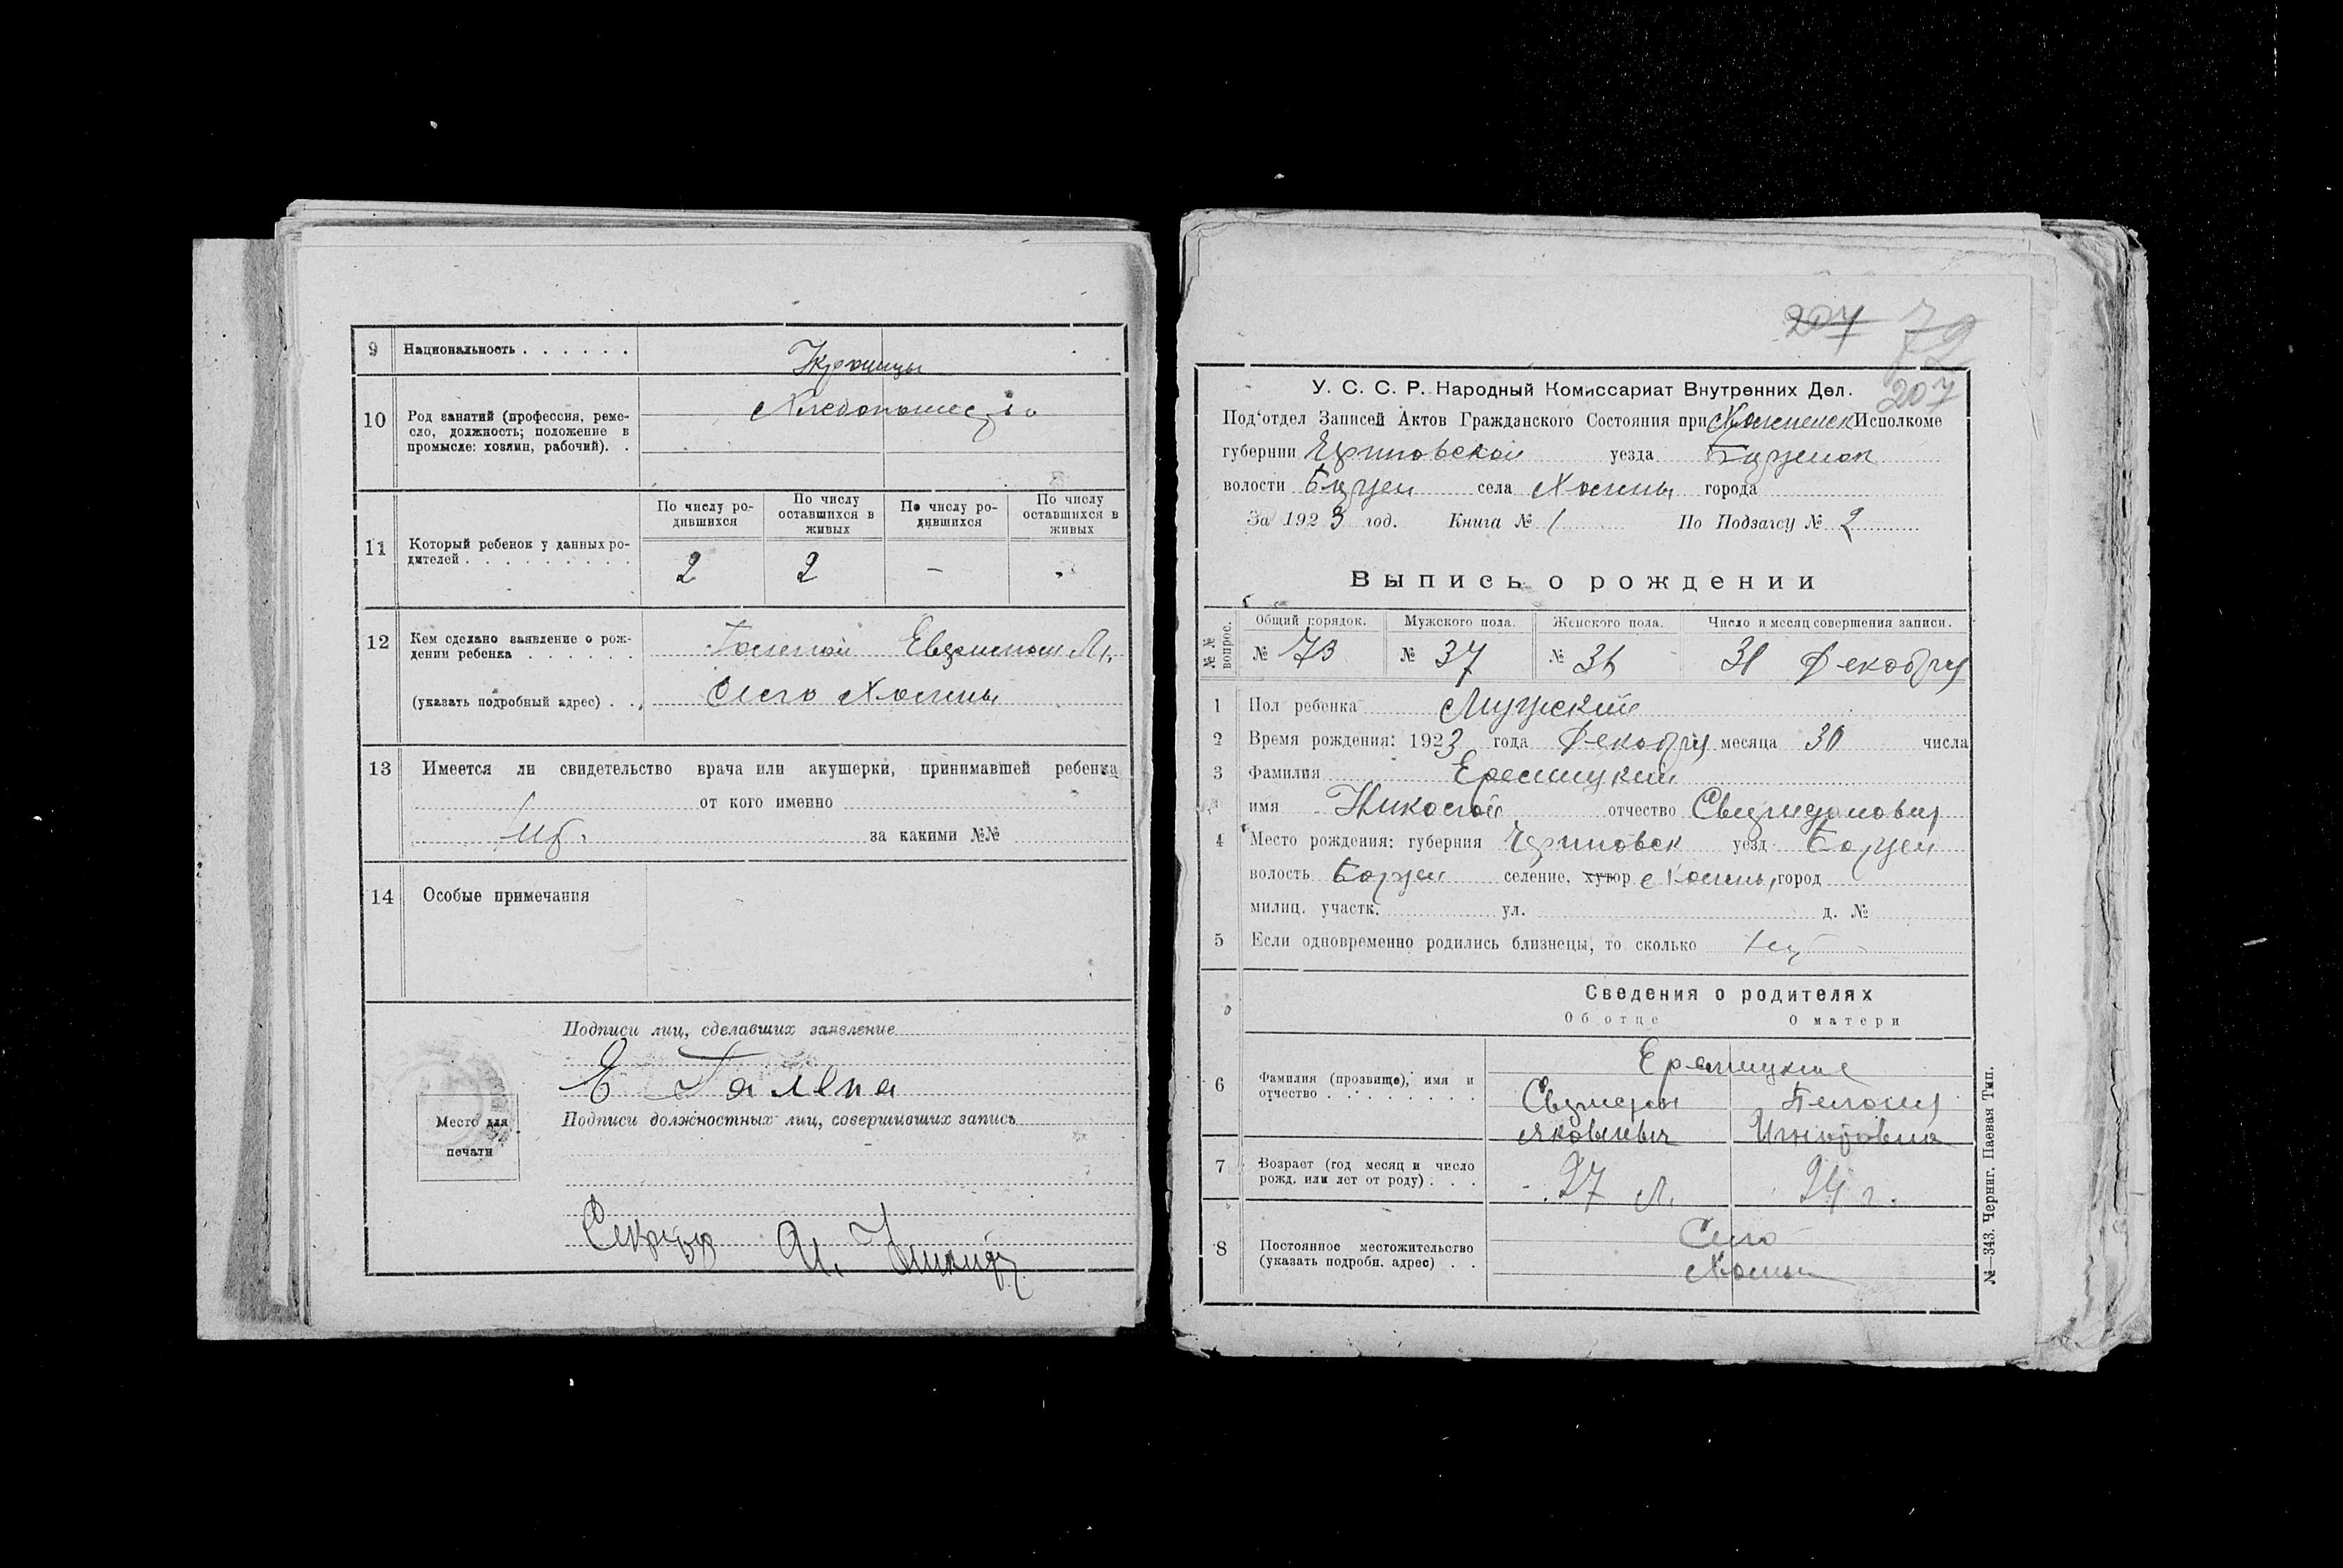 9 Национальность . . . . . . Украинцы
10 Род занятий (профессия, реме-
сло, должность; положение в
промысле: хозяин, рабочий). . Хлебопашество
11 Который ребенок у данных ро-
дителей . . . . . . . . .
По числу ро-
дившихся
По числу
оставшихся в
живых
По числу ро-
дившихся
По числу
оставшихся в
живых
2 2 -
12 Кем сделано заявление о рож-
дении ребенка . . . . . .
(указать подробный адрес) . . Село Холмы
13 Имеется ли свидетельство врача или акушерки, принимавшей ребенка
от кого именно
за какими №№
14 Особые примечания
Подписи лиц, сделавших заявление
Е Галепа
Подписи должностных лиц, совершивших запись
Место для
печати
Секретарь И.
207 72
207
У. С. С. Р. Народный Комиссариат Внутренних Дел.
Под'отдел Записей Актов Гражданского Состояния при Холменск Исполкоме
губернии Черниговской уезда
волости села Холмы города
За 1923 год. Книга № 1 По Подзагсу № 2
Выпись о рождении
№№ вопрос.
Общий порядок. Мужского пола. Женского пола. Число и месяц совершения записи.
№ 73 № 37 № 36 31 Декабря
1 Пол ребенка Мужской
2 Время рождения: 1923 года Декабря месяца 30 числа
3 Фамилия
имя Николай отчество Свиридонович
4 Место рождения: губерния Черниговск уезд
волость селение, хутор Холмы, город
милиц. участк. ул. д. №
5 Если одновременно родились близнецы, то сколько Нет
Сведения о родителях
Об отце О матери
6 Фамилия (прозвище), имя и
отчество . . . . . . . . .
Яковлевич Игнатовна
7 Возраст (год месяц и число
рожд. или лет от роду) . . . 27 л. 24 г.
8 Постоянное местожительство
(указать подробн. адрес) . . Село
Холмы
№—343. Черниг. Паевая Тип.